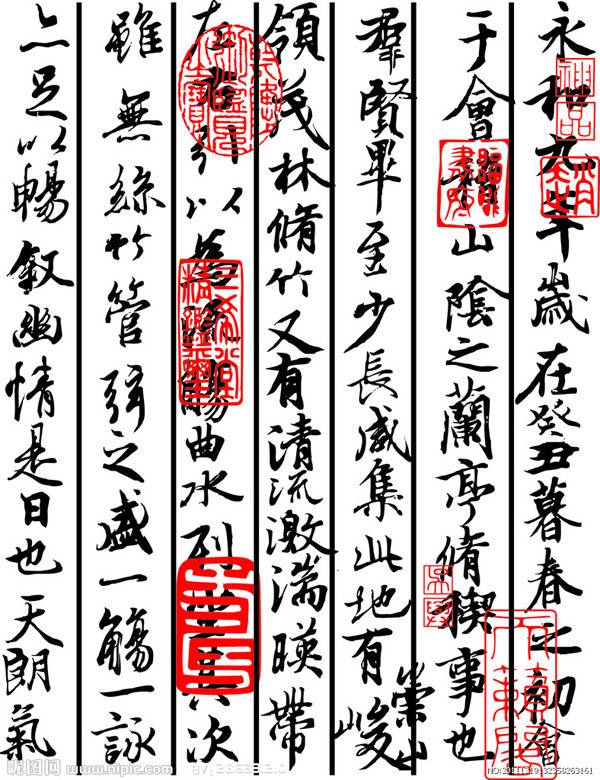 永和九年歲在癸丑暮春之初會
于會稽山陰之蘭亭脩禊事也
羣賢畢至少長咸集此地有崇山峻
領茂林脩竹又有清流激湍暎帶
左右引以為流觴曲水列坐其次
雖無絲竹管弦之盛一觴一詠
亦足以暢敘幽情是日也天朗氣
神品
三希堂精鑑璽
昵图网 www.nipic.com